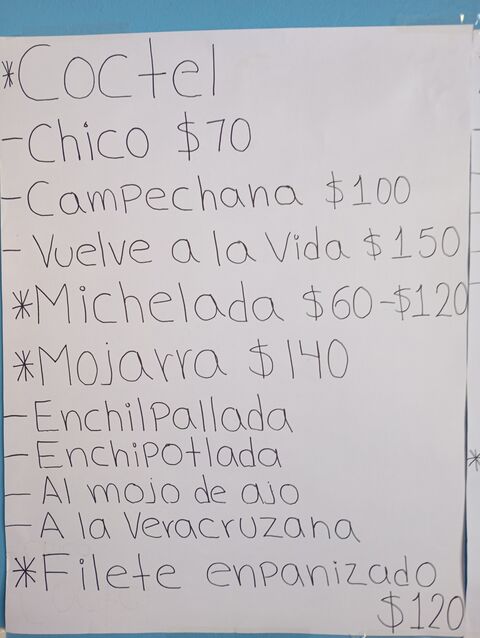 *Coctel
-Chico $70
-Campechana $100
-Vuelve a la Vida $150
*Michelada $60-$120
*Mojarra $140
-Enchilpallada
-Enchipotlada
-Al mojo de ajo
-A la Veracruzana
*Filete empanizado
$120